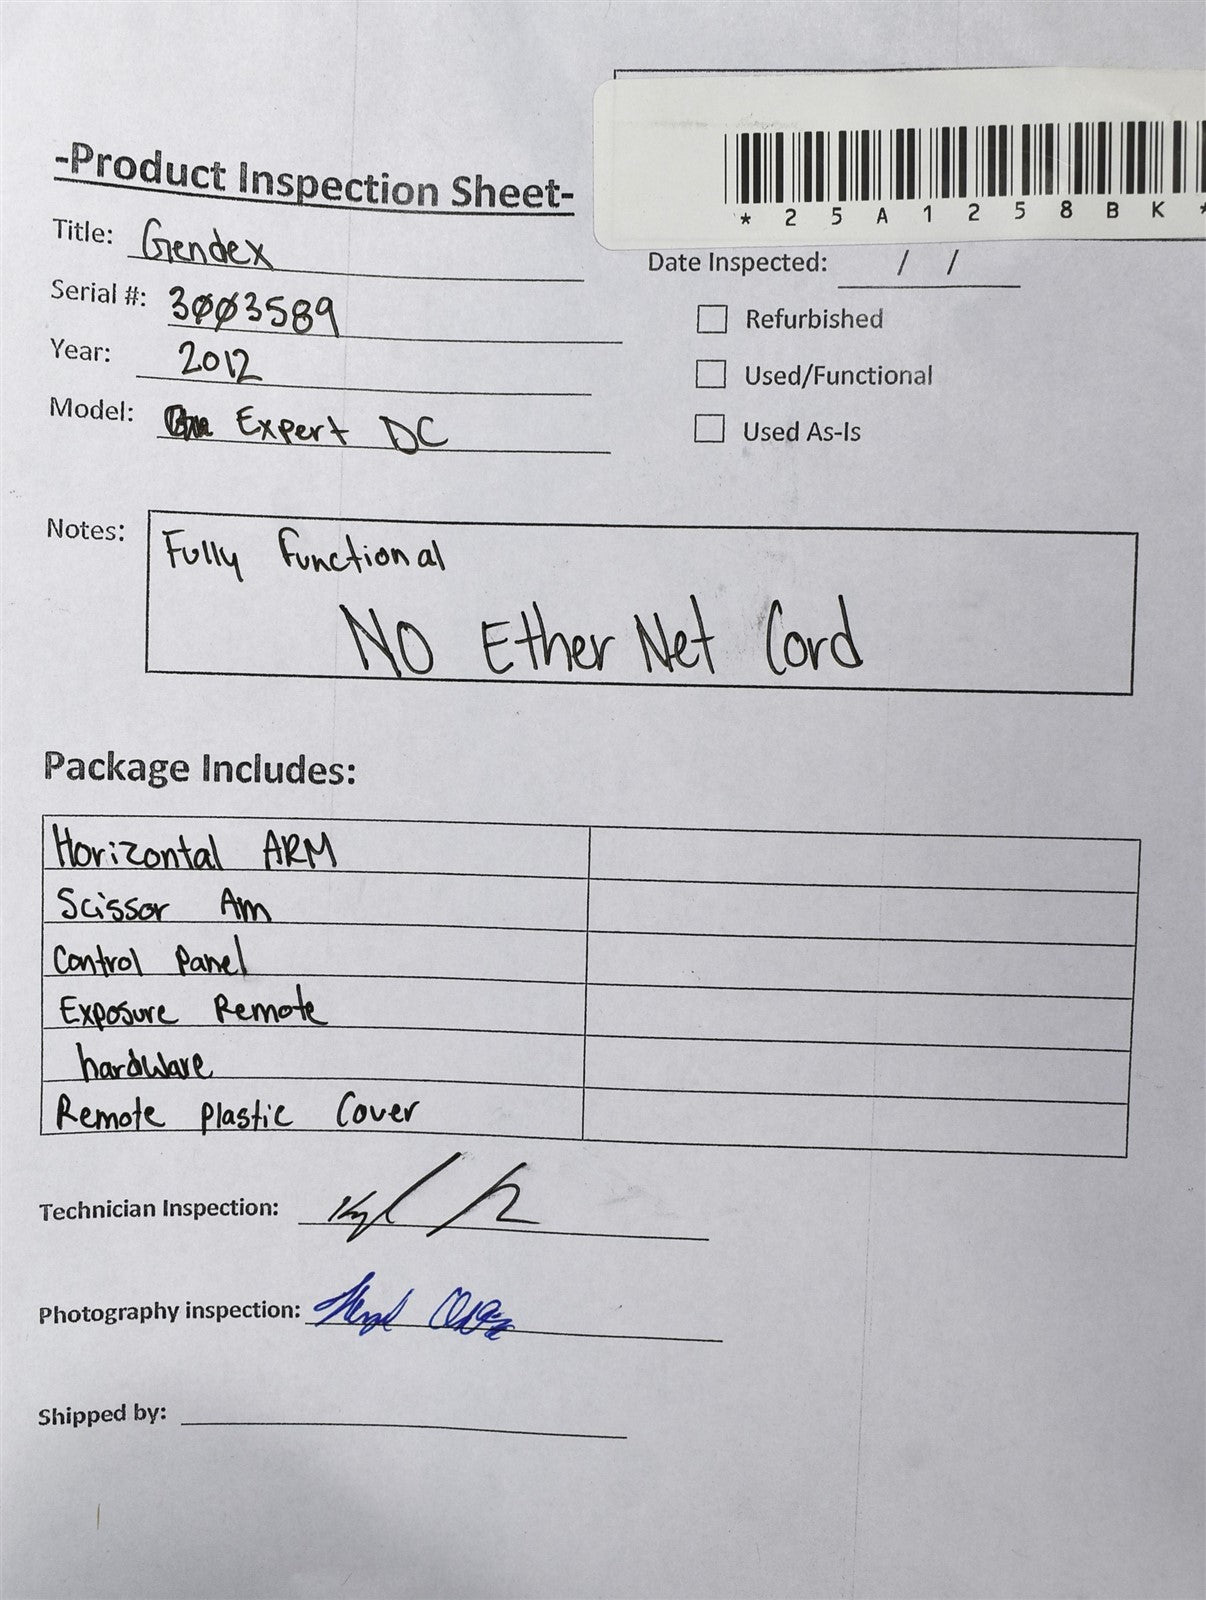 *25A1258BK*
-Product Inspection Sheet-
Title: Gendex
Date Inspected: / /
Serial #: 3003589
Refurbished
Year: 2012
Used/Functional
Model: Expert DC
Used As-Is
Notes: Fully functional
NO EtherNet Cord
Package Includes:
Horizontal ARM
Scissor Am
Control Panel
Exposure Remote
hardware
Remote Plastic Cover
Technician Inspection:
Photography inspection:
Shipped by: